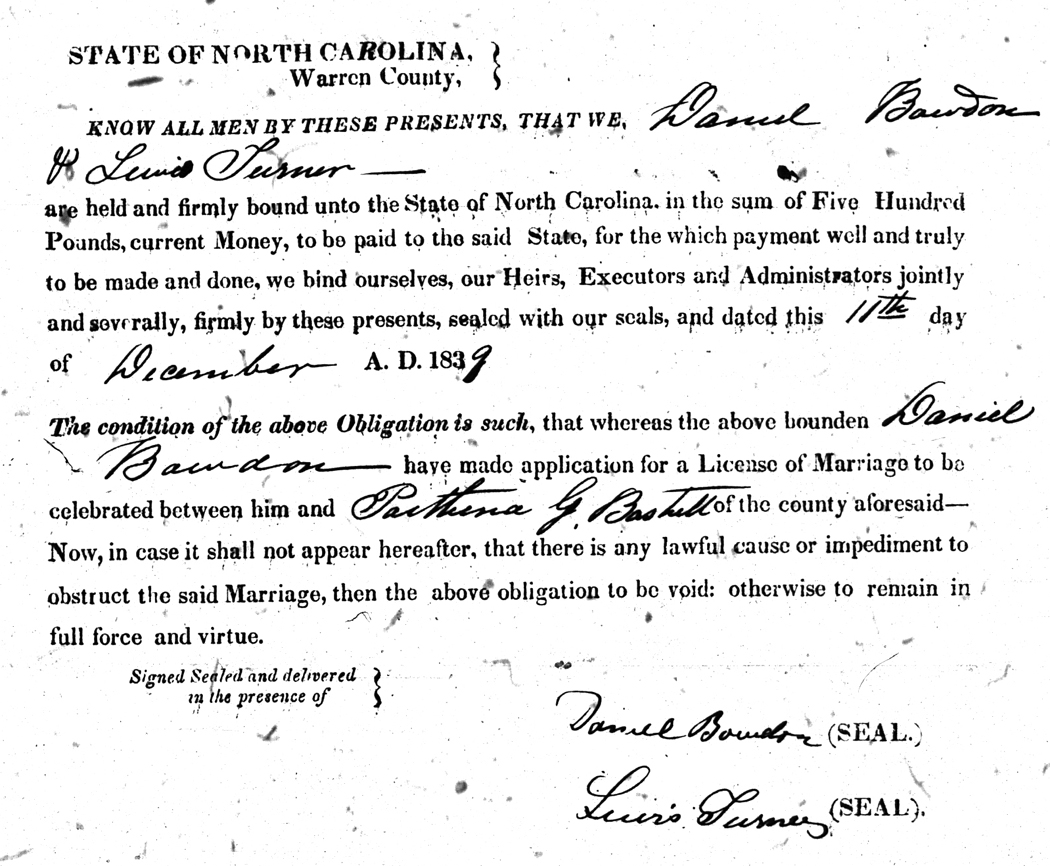 STATE OF NORTH CAROLINA,
Warren County,
KNOW ALL MEN BY THESE PRESENTS, THAT WE, Daniel Bowdon
& Lewis Turner
are held and firmly bound unto the State of North Carolina. in the sum of Five Hundred
Pounds, current Money, to be paid to the said State, for the which payment well and truly
to be made and done, we bind ourselves, our Heirs, Executors and Administrators jointly
and severally, firmly by these presents, sealed with our seals, and dated this 11th day
of December A. D. 1839
The condition of the above Obligation is such, that whereas the above bounden Daniel
Bowdon have made application for a License of Marriage to be
celebrated between him and Parthena G. of the county aforesaid—
Now, in case it shall not appear hereafter, that there is any lawful cause or impediment to
obstruct the said Marriage, then the above obligation to be void: otherwise to remain in
full force and virtue.
Signed Sealed and delivered
in the presence of
Daniel Bowdon (SEAL.)
Lewis Turner (SEAL).